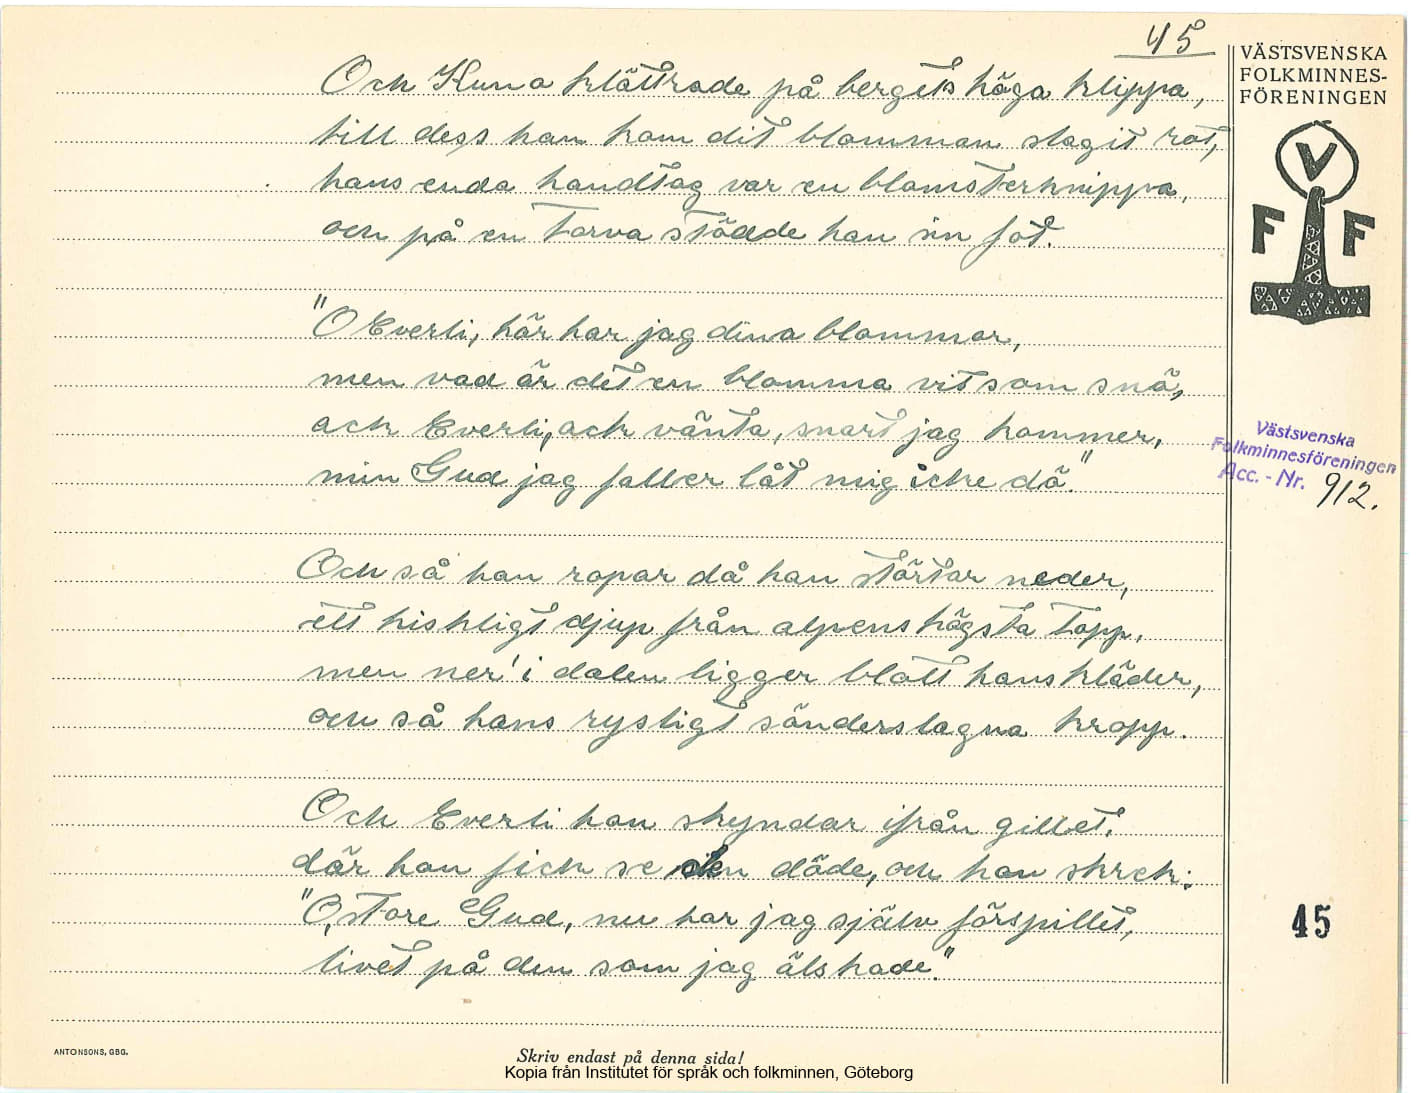 45
VÄSTSVENSKA
FOLKMINNES-
FÖRENINGEN
V
F F
Och Kuno klättrade på bergets höga klippa,
till dess han kom dit blomman slagit rot,
hans enda handtag var en blomsterknippa,
och på en torva stödde han sin fot.
"O Everli, här har jag dina blommor,
men vad är det en blomma vit som snö,
ack Everli, ack vänta, snart jag kommer,
min Gud jag faller låt mig icke dö."
Västsvenska
Folkminnesföreningen
Acc. - Nr. 912.
Och så han ropar då han störtar neder,
ett hiskligt djup från alpens högsta topp.
men ner' i dalen ligger blott hans kläder,
och så hans rysligt sönderslagna kropp.
Och Everli hon skyndar ifrån gillet.
där hon fick se den döde, och hon skrek:
"O, store Gud, nu har jag själv förspillet,
livet på den som jag älskade."
45
ANTONSONS, GBG.
Skriv endast på denna sida!
Kopia från Institutet för språk och folkminnen, Göteborg